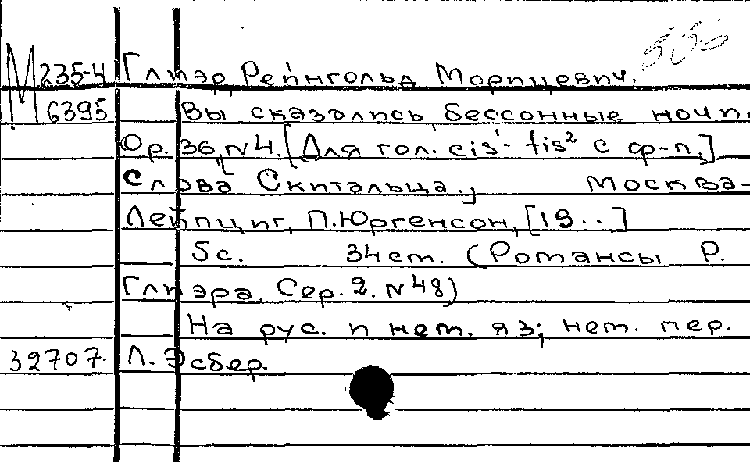 М 235-4 Глиэр, Рейнгольд Морицевич.
6395 Вы сказались, бессонные ночи.
Op. 36, №4. [Для гол. cis¹- fis² с ф-п.]
[Слова Скитальца.] Москва-
Лейпциг, П. Юргенсон, [19..]
5с. 34ст. (Романсы Р.
Глиэра. Сер. 2. №48)
На рус. и нем. яз; нем. пер.
32707. Л. Эсбер.